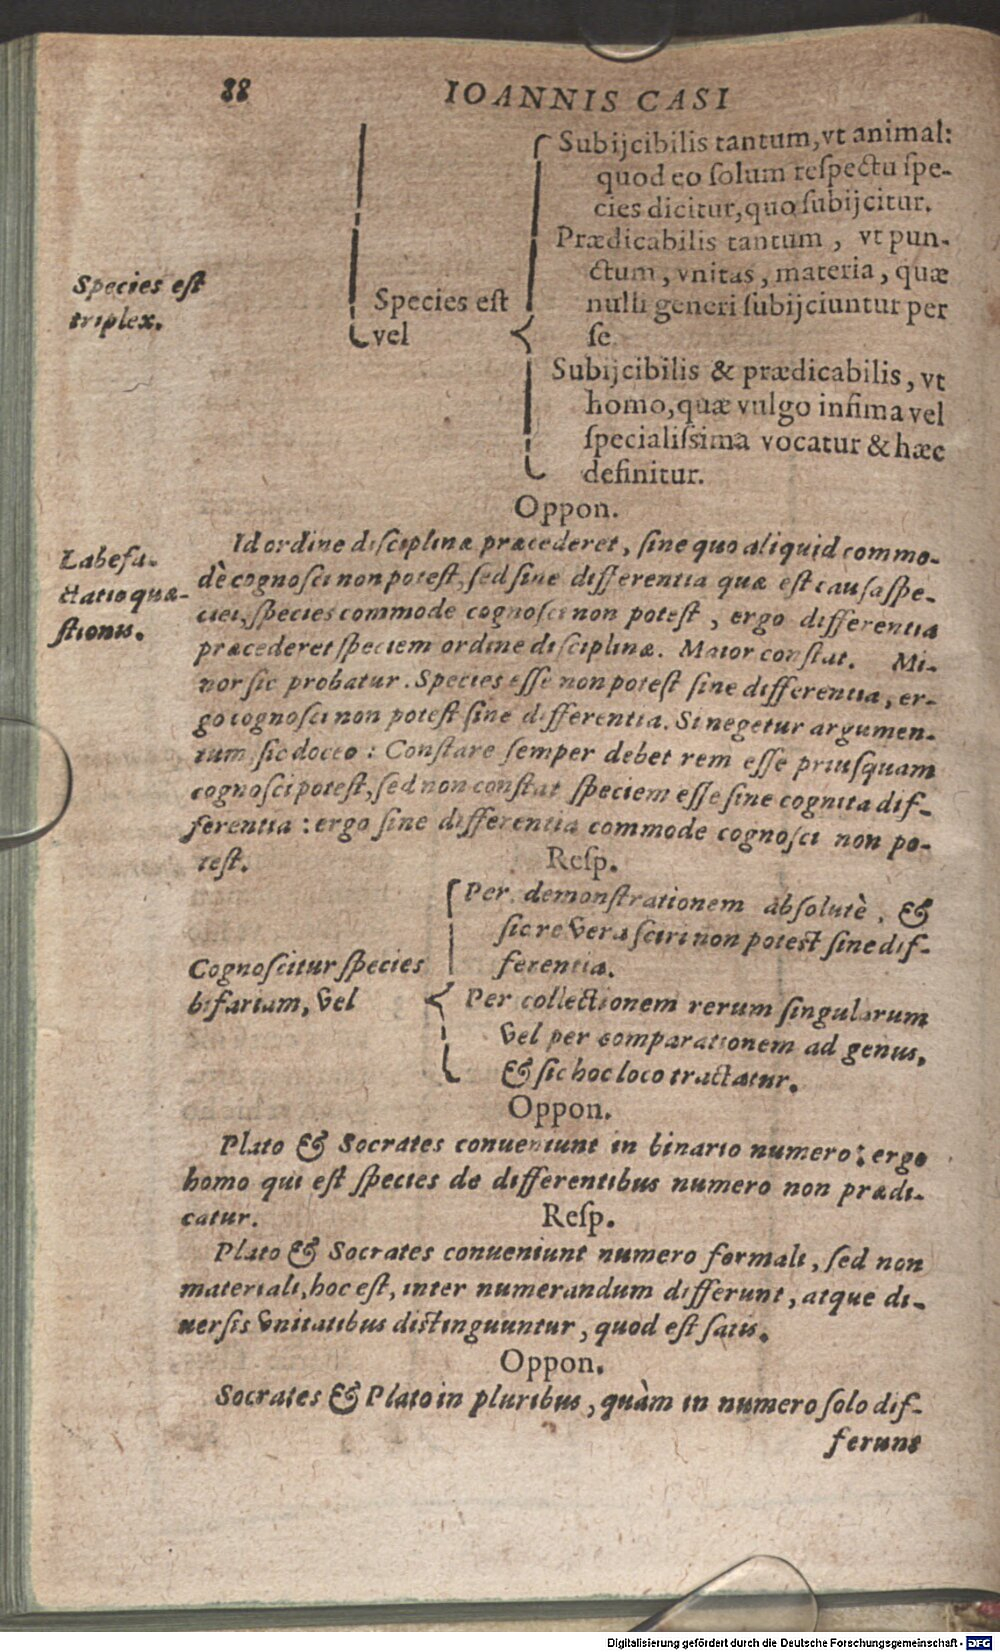 88
IOANNIS CASI
Subijcibilis tantum, vt animal:
quod eo solum respectu spe-
cies dicitur, quo subijcitur.
Prædicabilis tantum, vt pun-
ctum, vnitas, materia, quæ
nulli generi subijciuntur per
se
Species est
triplex.
Species est
vel
Subijcibilis & prædicabilis, vt
homo, quæ vulgo infima vel
specialissima vocatur & hæc
definitur.
Oppon.
Labefa-
ctatio quæ-
stionis.
Id ordine disciplinæ præcederet, sine quo aliquid commo-
dè cognosci non potest, sed sine differentia quæ est causa spe-
ciei, species commode cognosci non potest, ergo differentia
præcederet speciem ordine disciplinæ. Maior constat. Mi-
nor sic probatur. Species esse non potest sine differentia, er-
go cognosci non potest sine differentia. Si negetur argumen-
tum sic doceo: Constare semper debet rem esse priusquam
cognosci potest, sed non constat speciem esse sine cognita dif-
ferentia: ergo sine differentia commode cognosci non po-
test.
Resp.
Cognoscitur species
bifariam, vel
Per demonstrationem absolutè, &
sic re vera sciri non potest sine dif-
ferentia.
Per collectionem rerum singularum
vel per comparationem ad genus,
& sic hoc loco tractatur.
Oppon.
Plato & Socrates conueniunt in binario numero: ergo
homo qui est species de differentibus numero non prædi-
catur.
Resp.
Plato & Socrates conueniunt numero formali, sed non
materiali, hoc est, inter numerandum differunt, atque di-
uersis vnitatibus distinguuntur, quod est satis.
Oppon.
Socrates & Plato in pluribus, quàm in numero solo dif-
ferunt
Digitalisierung gefördert durch die Deutsche Forschungsgemeinschaft - DFG